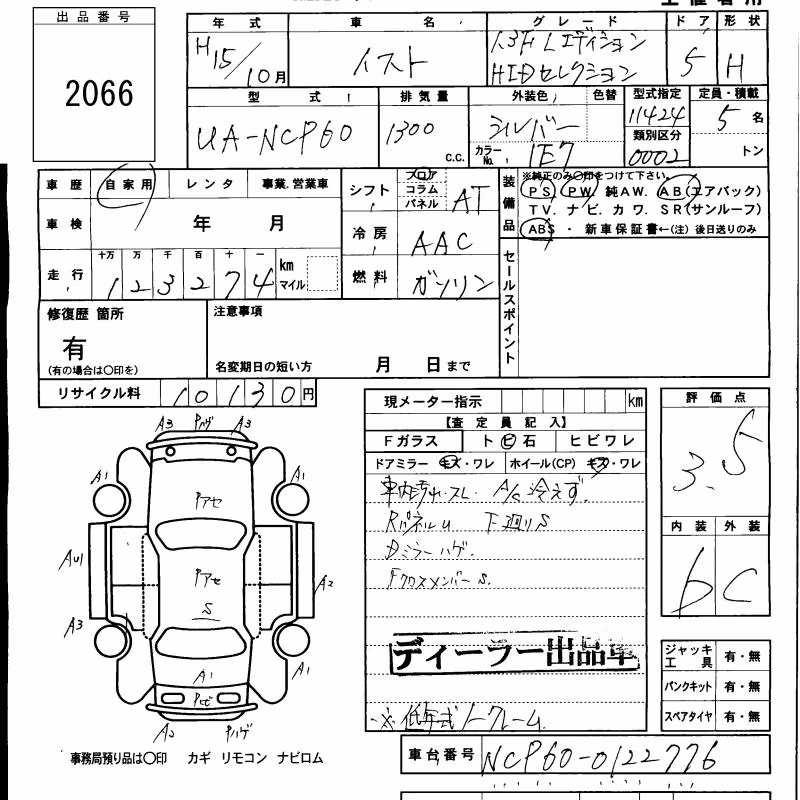 出品番号
2066
年式 車名 グレード ドア 形状
H15/10月 イスト 1.3F Lエディション HIDセレクション 5 H
型式 排気量 外装色 色替 型式指定 定員・積載
UA-NCP60 1300 c.c. シルバー 11424 5名
カラーNo. 1E7 類別区分 0002 トン
車歴 自家用 レンタ 事業.営業車
シフト フロア コラム パネル AT
装備品 ※純正のみ○印をつけて下さい。
PS PW 純AW. AB(エアバック)
TV. ナビ. カワ. SR(サンルーフ)
ABS ・ 新車保証書←(注) 後日送りのみ
車検 年 月
冷房 AAC
走行 十万 万 千 百 十 一
123274 km マイル
燃料 ガソリン
セールスポイント
修復歴 箇所
有
(有の場合は○印を)
注意事項
名変期日の短い方 月 日まで
リサイクル料 10130円
現メーター指示 km
【査定員記入】
Fガラス ト ビ 石 ヒビワレ
ドアミラー キズ・ワレ ホイール(CP) キズ・ワレ
車内汚れ・スレ. A/C冷えず.
RパネルU 下廻りS
Dミラーハゲ.
FクロスメンバーS.
ディーラー出品車
※低年式ノークレーム.
評価点
3.5
内装 外装
b C
A3 Pハゲ A3
A1 A1
Pアセ
AU1 Pアセ A2
S
A3 A1 A1
Pヒビ
A2 Pハゲ
事務局預り品は○印 カギ リモコン ナビロム
ジャッキ工具 有・無
パンクキット 有・無
スペアタイヤ 有・無
車台番号 NCP60-0122776